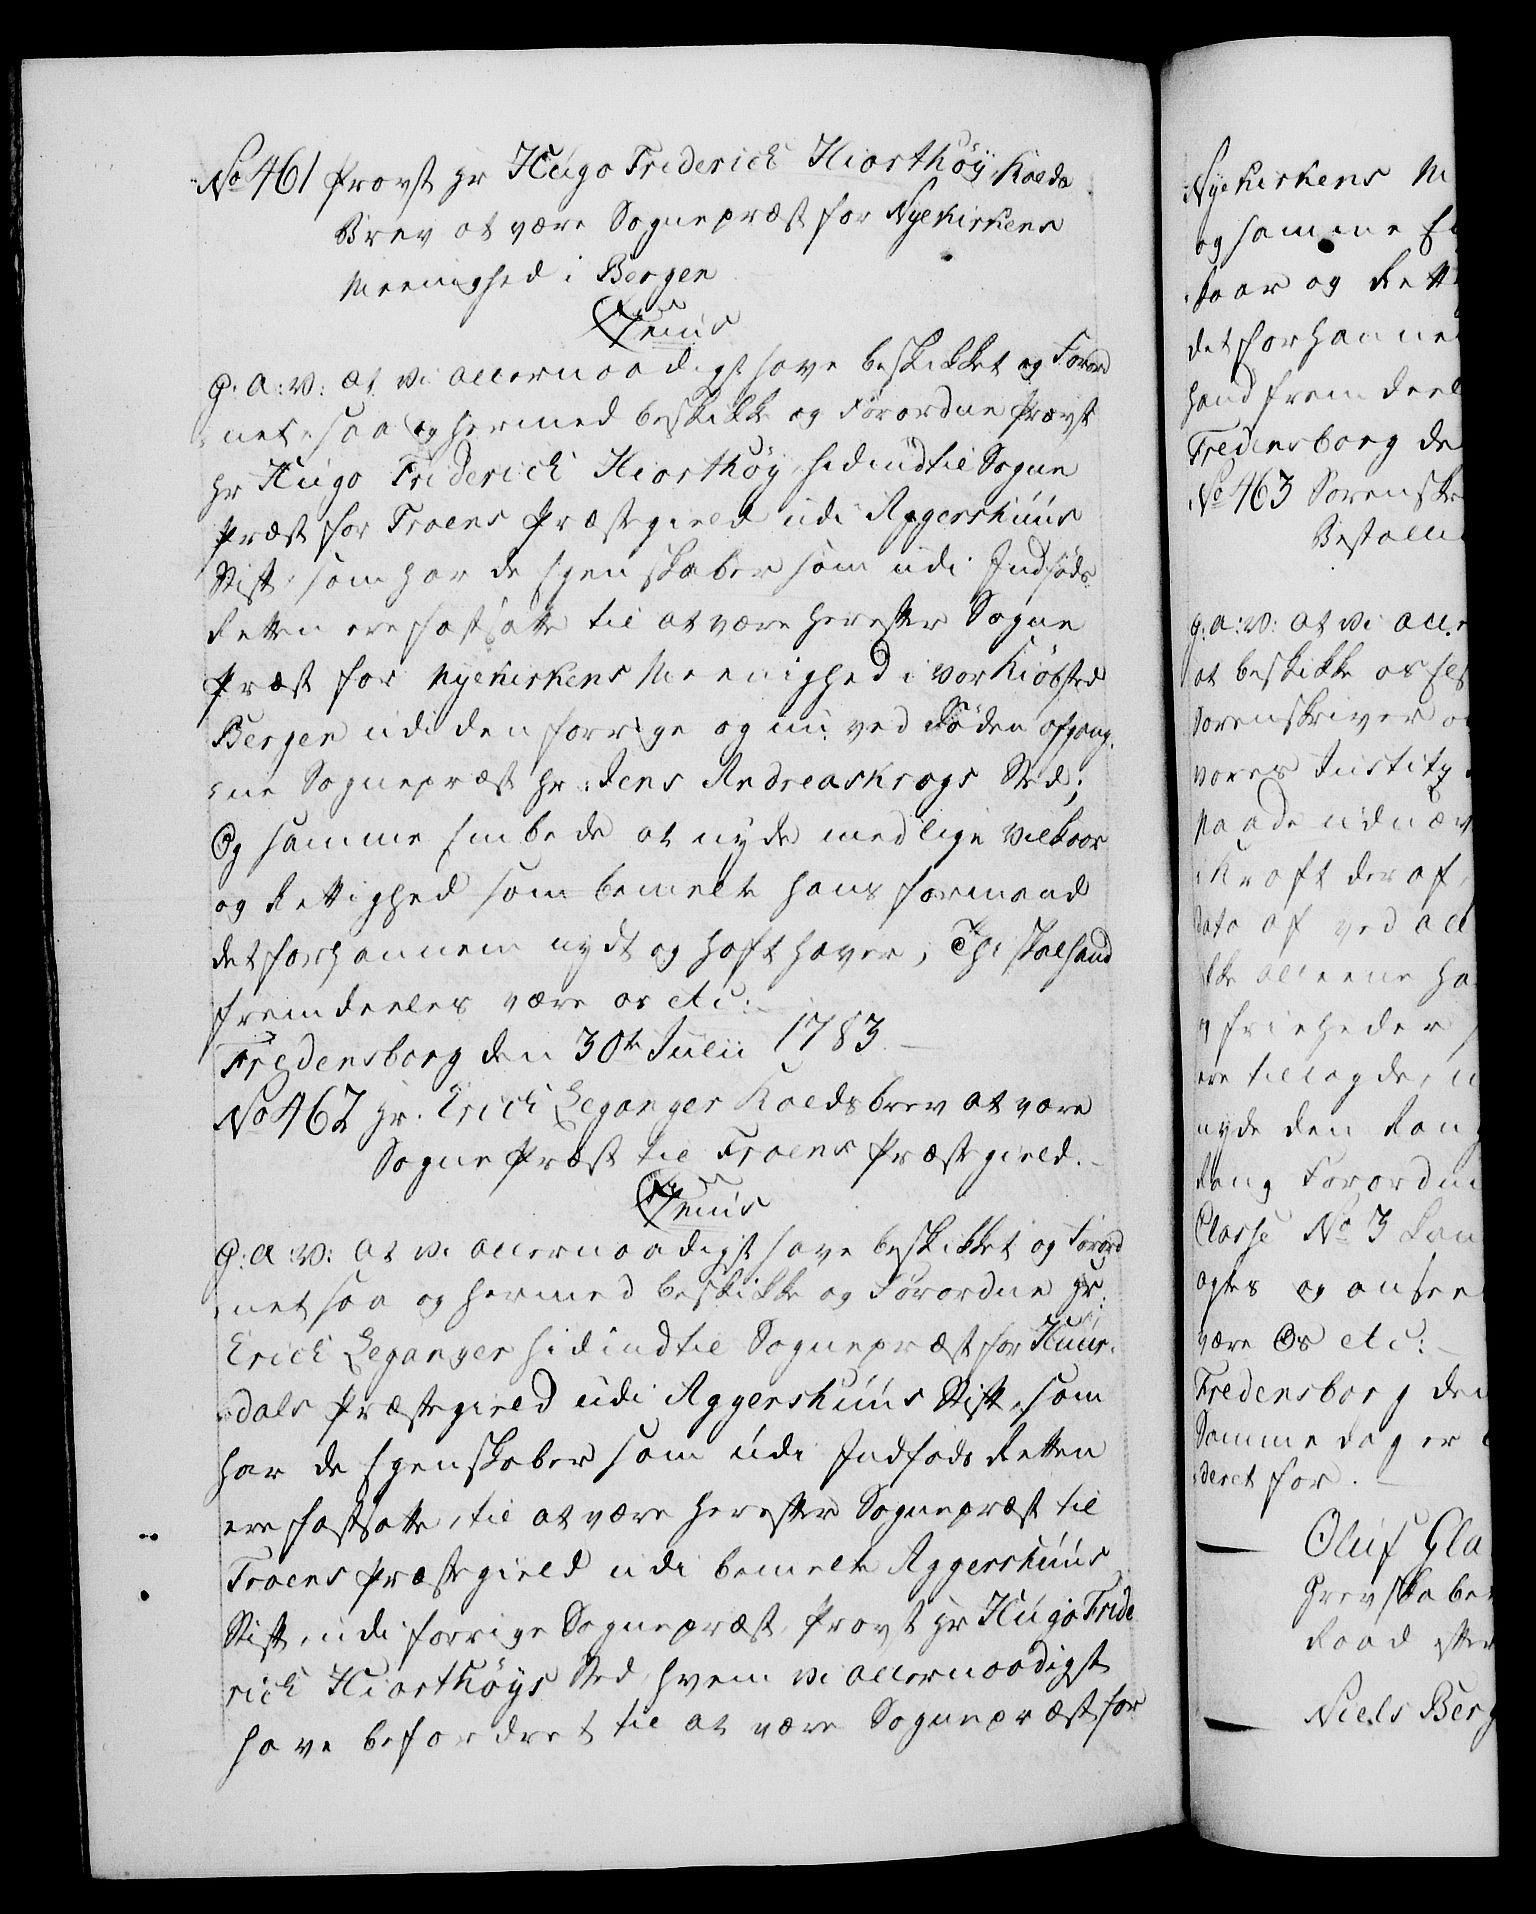 No 461 Provst Hr Hugo Friderich Hiorthöÿ Kalds
Brev at være Sognepræst for Nyekirkens
Meenighed i Bergen
C7enus
G: A: V: At Vi allernaadigst have beskikket og Forord
net, saa og hermed beskikke og Forordne Provst
Hr Hugo Friderich Hiorthöÿ, hidindtil Sogne
Præst for Froens Præstegield udi Aggershuus
Stift, som har de Egenskaber som udi Indföds-
Retten ere fastsatte til at være herefter Sogne
Præst for Nyekirkens Meenighed i Vor Kiöbsted
Bergen udi den forrige og nu ved Döden afgang-
ne Sognepræst Hr: Jens Andreas Krogs Sted;
Og samme Embede at nyde med lige Vilkaar
og Rettighed som bemelte hans formand
det for hannem nydt og haft haver, Thi skal hand
fremdeeles være os etc:
Fredensborg den 30te Julii 1783
No 462 Hr. Erich Leganger Kaldsbrev at være
Sogne Præst til Froens Præstegield.
C7enus
G: A: V: At Vi allernaadigst have beskikket og Forord
net saa og hermed beskikke og Forordne Hr:
Erich Leganger hidindtil Sognepræst for Huur-
dals Præstegield udi Aggershuus Stift, som
har de Egenskaber som udi Indföds Retten
ere fastsatte, til at være herefter Sognepræst til
Froens Præstegield udi bemelte Aggershuus
Stift, udi forrige Sognepræst, Provst Hr Hugo Fride
rich Hiorthöÿs Sted, hvem Vi allernaadigst
have befordret til at være Sognepræst for
Nyekirkens M
og samme E
kaar og Rett
det for hannem
hand fremdeel
Fredensborg de
No 463 Sorenskr
Bestalli
G: A: V: At Vi all
at beskikke os El
Sorenskriver o
vores Justitz
Naade udnæv
i Kraft deraf,
dato af ved all
ikke alleene ha
friheder
ere tillagde,
nyde den Rang
Rang Forordni
Classe No 3 kan
agtes og ansee
være Os etc:
Fredensborg den
Samme dag er
deret for.
Oluf Gla
Grevskabe
Raad efter
Niels Berg